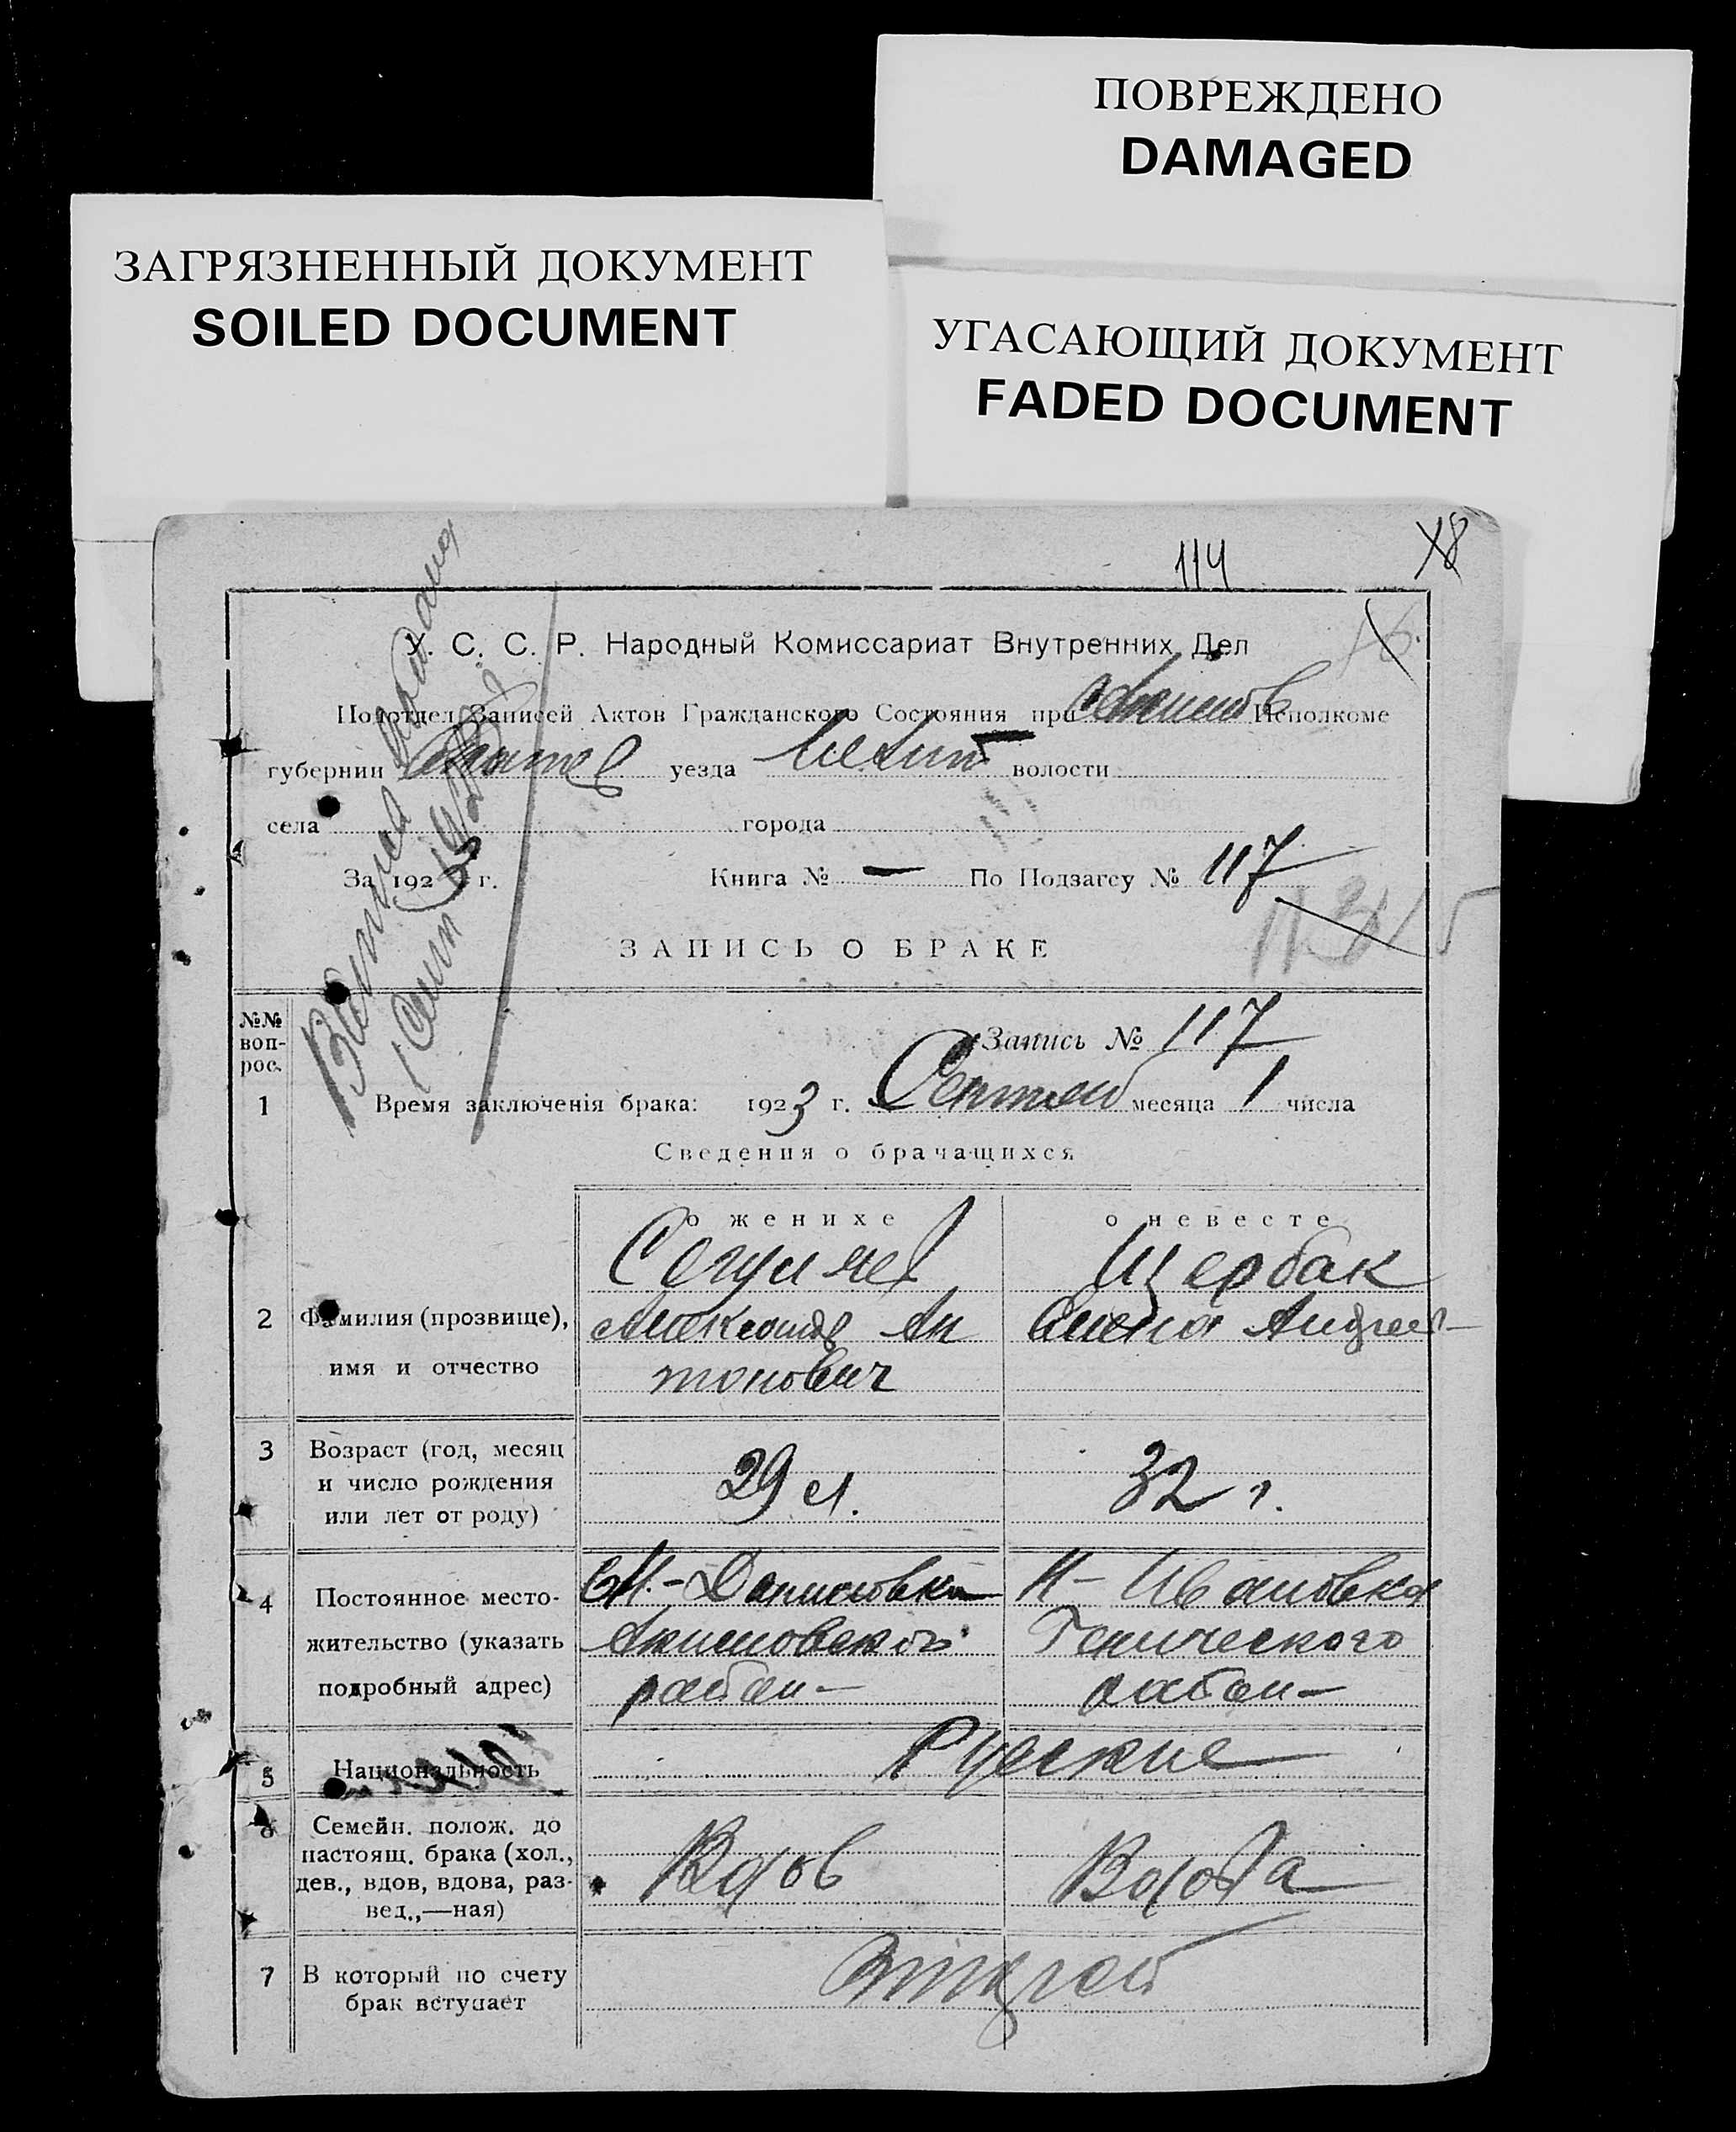 ПОВРЕЖДЕНО
DAMAGED
ЗАГРЯЗНЕННЫЙ ДОКУМЕНТ
SOILED DOCUMENT
УГАСАЮЩИЙ ДОКУМЕНТ
FADED DOCUMENT
114 18
У. С. С. Р. Народный Комиссариат Внутренних Дел
Подотдел Записей Актов Гражданского Состояния при Акимов Исполкоме
губернии уезда Мелит волости
села города
За 1923 г. Книга № — По Подзагсу № 117
ЗАПИСЬ О БРАКЕ
№№ воп-рос.
Запись № 117
1 Время заключенія брака: 1923 г. Сентяб месяца 1 числа
Сведения о брачащихся
о женихе о невесте
Щербак
2 Фамилия (прозвище), Александр Ан Елена Андреев-
имя и отчество тонович
3 Возраст (год, месяц
и число рождения 29 л. 32 г.
или лет от роду)
4 Постоянное место- М.-Даниловка Н-Ивановка
жительство (указать Акимовской Генического
подробный адрес) район- район-
5 Национальность Руские
6 Семейн. полож. до
настоящ. брака (хол., Вдов Вдова
дев., вдов, вдова, раз-
вед.,—ная)
7 В который по счету Второй
брак вступает